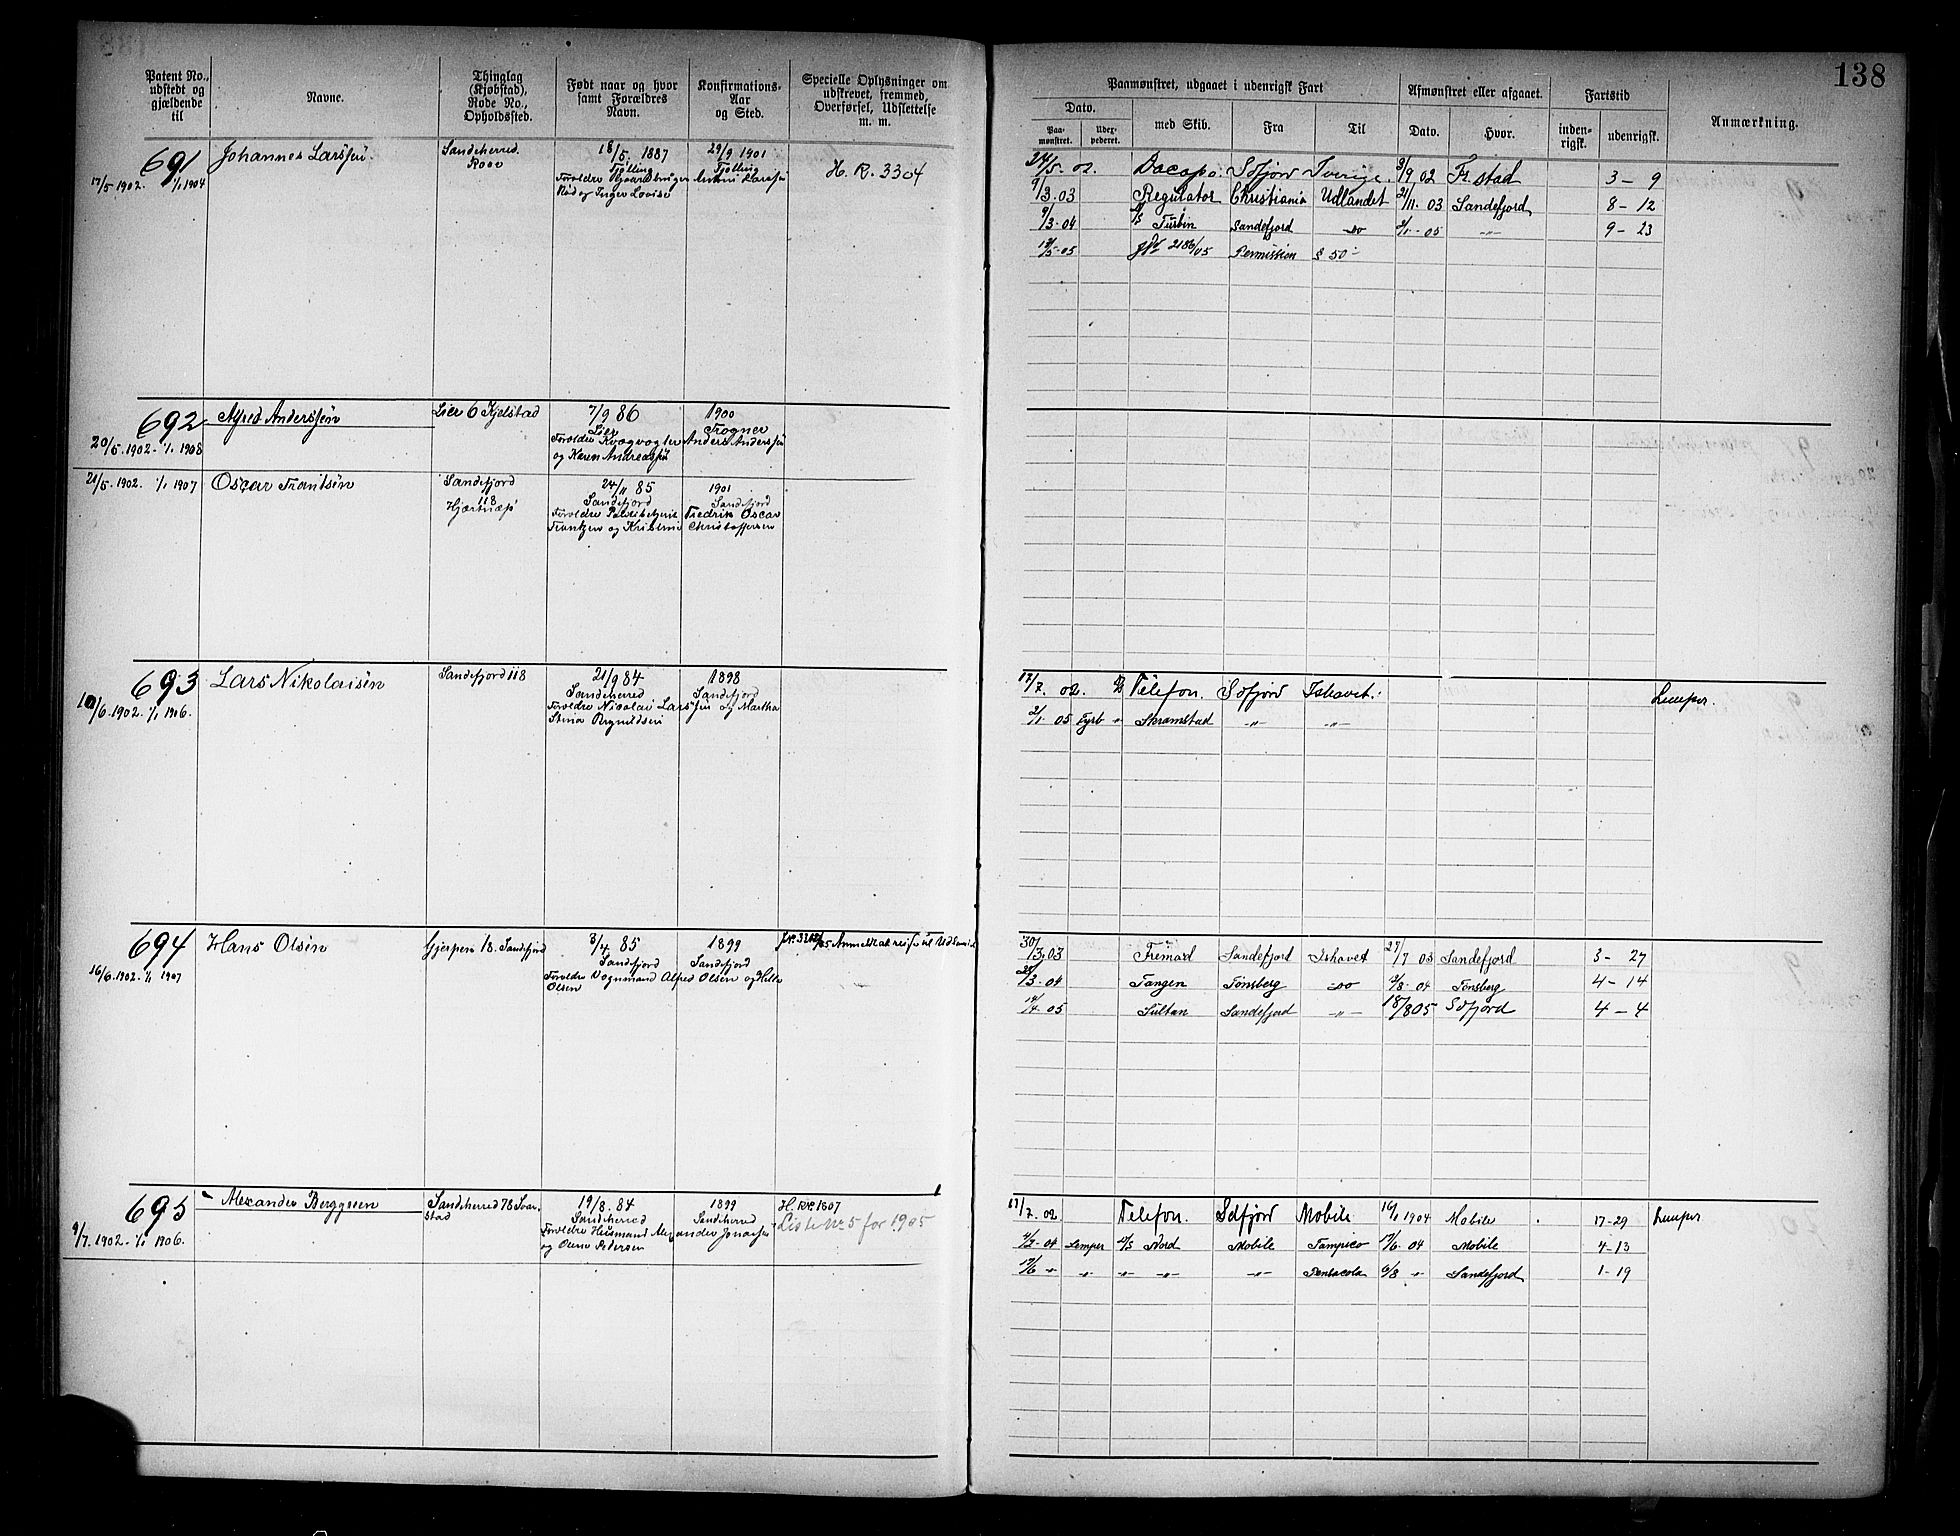 138
Patent No., udstedt og gjældende til
Navne.
Thinglag (Kjøbstad), Rode No., Opholdssted.
Født naar og hvor samt Forældres Navn.
Konfirmations- Aar og Sted.
Specielle Oplysninger om udskrevet, fremmed, Overførsel, Udslettelse m. m.
Paamønstret, udgaaet i udenrigsk Fart
Dato.
Paa- mønstret.
Uder- pederet.
med Skib.
Fra
Til
Afmønstret eller afgaaet.
Dato.
Hvor.
Fartstid
inden- rigsk.
udenrigsk.
Anmærkning.
691
17/5 1902. 1/1 1904
Johannes Larssen.
Sandeherred.
18/5 1887
Tjølling
Forældre Gaardbruger
og Inger Lovise
29/9 1901
Tjølling
H. R. 3304
24/5. 02. Dacapo Sdfjord Sverige. 3/9 02 Fr.stad 3 – 9
9/3.03 Regulator Christiania Udlandet 21/11. 03 Sandefjord 8 – 12
9/3-04 S/S Turbin Sandefjord do 2/1-05 -„- 9 – 23
5-05 2186/05 Permission § 50
692
20/5.1902. 1/1 1908
Alfred Anderssen
Lier 6 Kjelstad
7/9 86
Lier
Forældre
og Karen Andreassen
1900
Frogner
Anders Anderssen
21/5.1902. 1/1 1907
Oscar Frantsen
Sandefjord
118
24/11 85
Sandefjord
Forældre
Frantzen og
1901
Sandefjord
Fredrik Oscar
Christoffersen
693
10/6.1902. 1/1 1906.
Lars Nikolaisen
Sandefjord 118
21/9 84
Sandeherred
Forældre Nicolai Larssen og Martha
Stina Brynildsen
1898
Sandefjord
17/7. 02. Telefon. Sdfjord Ishavet. Lemper.
2/1. 05 Fyrb „ Skramstad -„- -„-
694
16/6.1902. 1/1 1907
Hans Olsen
Gjerpens 18. Sandefjord
3/4. 85
Sandefjord
Forældre Vognmand Alfred Olsen og
Olsen
1899
Sandefjord
30/3.03 Fremad Sandefjord Ishavet 27/7 03 Sandefjord 3 – 27
3-04 Tangen Tønsberg do 8-04 Tønsberg 4 – 14
14/4. 05 Sultan Sandefjord -„- 18/8 05 Sdfjord 4 – 4
695
9/7.1902. 1/1 1906.
Alexander Berggreen
Sandeherred 78
19/8. 84
Sandeherred
Forældre Husmand Alexander
og Olene Pedersen
1899
Sandeherred
H. R. No. 1607
Liste No. 5 for 1905
17/7. 02 Telefon. Sdfjord Mobile 16/1 1904 Mobile 17-29 Lemper
2-04 Lemper S/S Nord Mobile Tampico 17/6. 04 Mobile 4-13
17/6 „ „ „ -„- -„- Pensacola 6/8 „ Sandefjord 1-19